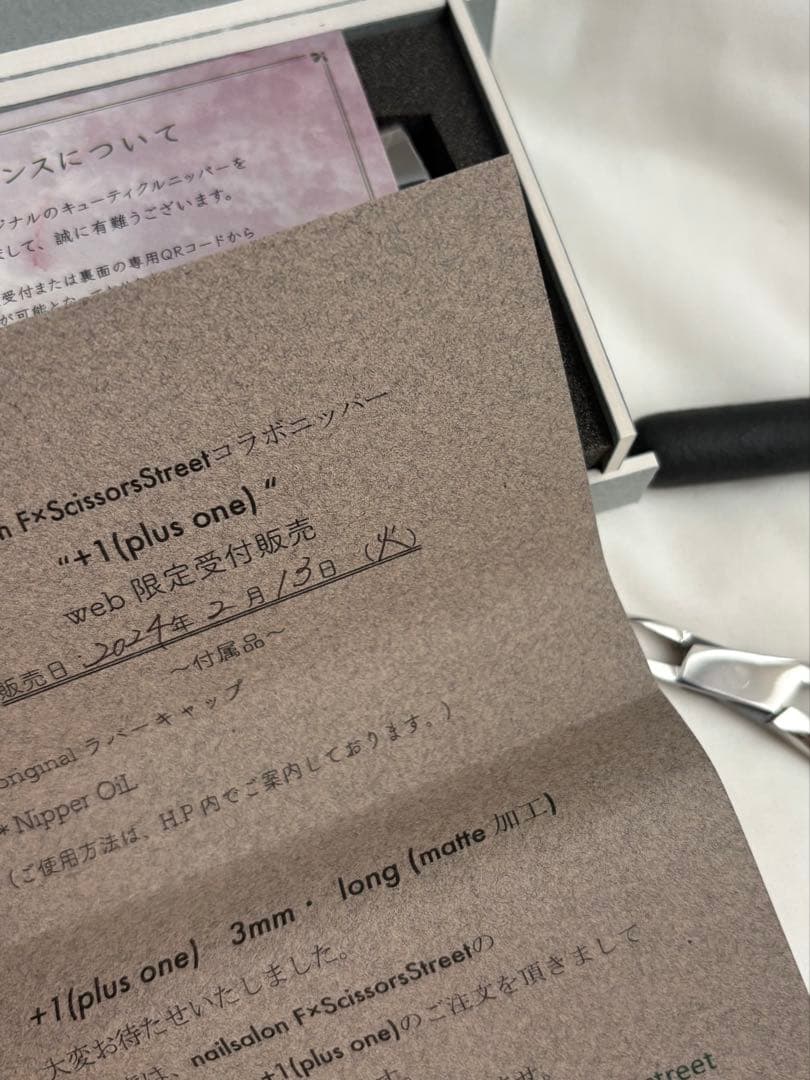 ンスについて
ジナルのキューティクルニッパーを
まして、誠に有難うございます。
受付または裏面の専用QRコードから
が可能となって
n F×ScissorsStreetコラボニッパー
“+1(plus one)“
web 限定受付販売
販売日:2024年 2月 13日 (火)
~付属品~
original ラバーキャップ
*Nipper OiL
(ご使用方法は、H.P 内でご案内しております。)
+1(plus one) 3mm・ long (matte 加工)
大変お待たせいたしました。
は、nailsalon F×ScissorsStreetの
+1(plus one)のご注文を頂きまして
す。
せ。
street